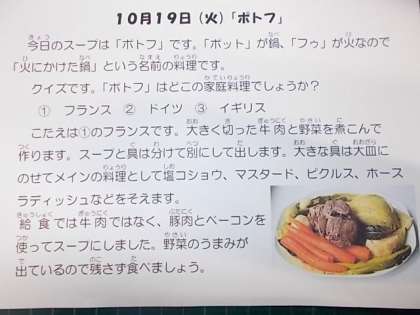 10月19日（火）「ポトフ」
今日のスープは「ポトフ」です。「ポット」が鍋、「フゥ」が火なので
「火にかけた鍋」という名前の料理です。
クイズです。「ポトフ」はどこの家庭料理でしょうか？
① フランス ② ドイツ ③ イギリス
こたえは①のフランスです。大きく切った牛肉と野菜を煮こんで
作ります。スープと具は分けて別にして出します。大きな具は大皿に
のせてメインの料理として塩コショウ、マスタード、ピクルス、ホース
ラディッシュなどをそえます。
給食では牛肉ではなく、豚肉とベーコンを
使ってスープにしました。野菜のうまみが
出ているので残さず食べましょう。